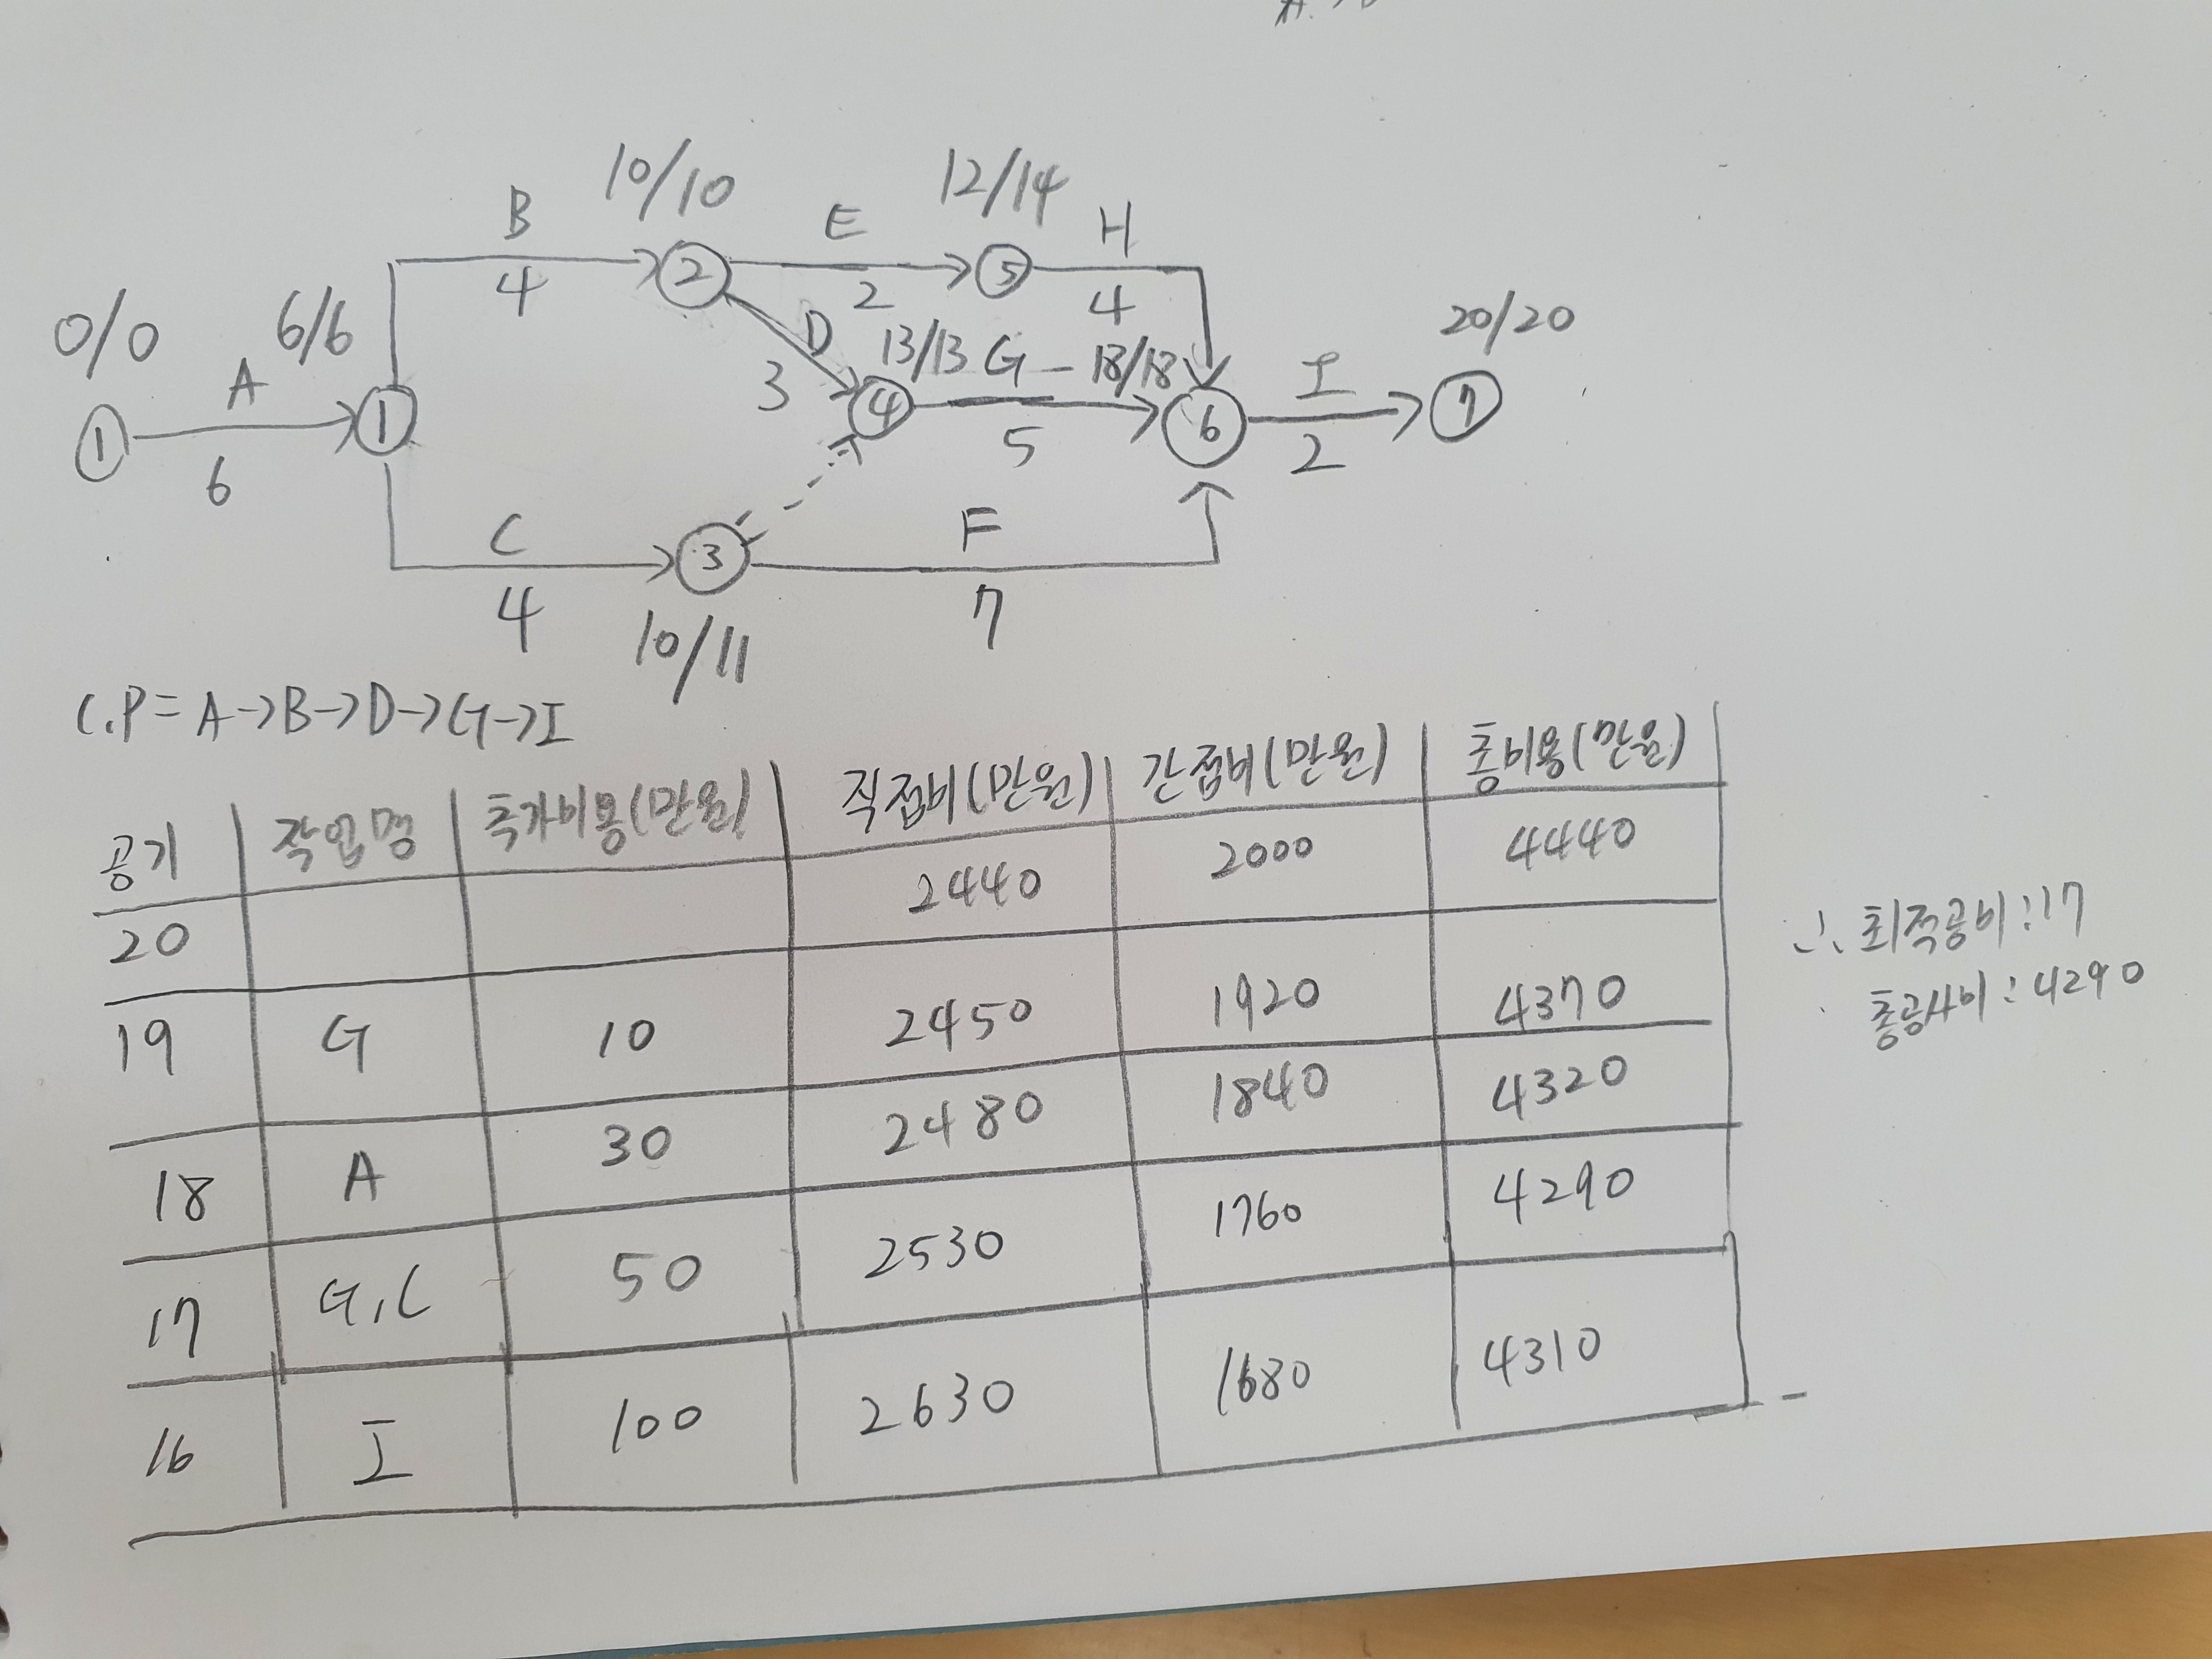 10/10
12/14
B
E
H
4
②
2
⑤
4
0/0
6/6
D
13/13
G
18/18
20/20
A
3
④
I
①
①
5
⑥
2
⑦
6
C
③
F
4
7
10/11
C.P = A->B->D->G->I
공기 작업명 추가비용(만원) 직접비(만원) 간접비(만원) 총비용(만원)
20 2440 2000 4440
19 G 10 2450 1920 4370
18 A 30 2480 1840 4320
17 G, C 50 2530 1760 4290
16 I 100 2630 1680 4310
∴ 최적공비 : 17
총공사비 : 4290